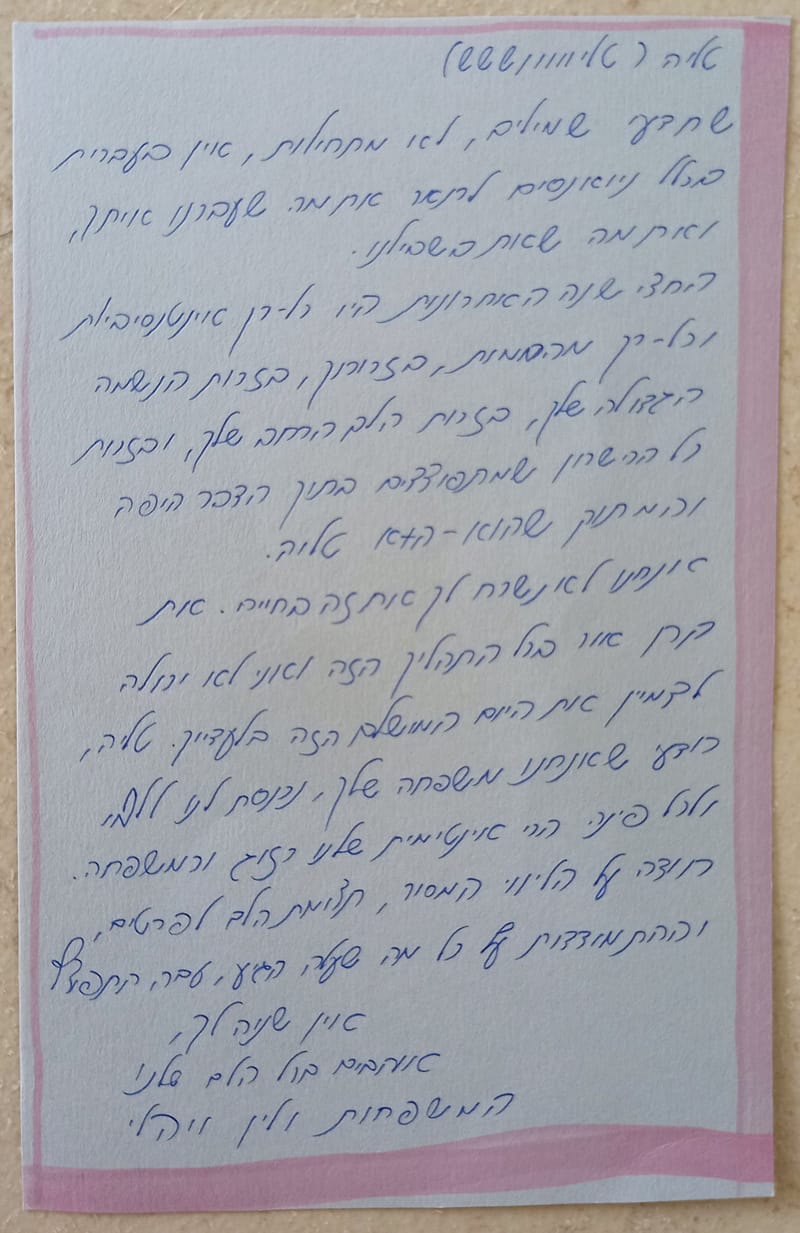 טליה (טליוווווששש)
שתדעי שמילים, לא מתחילות, אין בעברית
מכלל ניואנסים לתאר את מה שעברנו איתך,
ואת מה שאת בשבילנו.
החצי שנה האחרונות היו כל-כך אינטנסיבית
וכל-כך מהממות, בזכותך, בזכות הנשמה
הגדולה שלך, בזכות הלב הרחב שלך, ובזכות
כל הכישרון שמתפוצצים בתוך הדבר היפה
והמתוק שהוא-היא טליה.
אנחנו לא נשכח לך את זה בחיים. את
קרן אור בכל התהליך הזה ואני לא יכולה
לדמיין את היום המושלם הזה בלעדייך. טליה,
תדעי שאנחנו משפחה שלך, נכנסת לנו ללב
ולכל פינה הכי אינטימית שלנו כזוג וכמשפחה.
תודה על הליווי המסור, תשומת הלב לפרטים,
וההתמודדות עם כל מה שעלה, הגיע, עבר, התפוצץ
אין שניה לך,
אוהבים בכל הלב שלנו
המשפחות ולין ויהלי